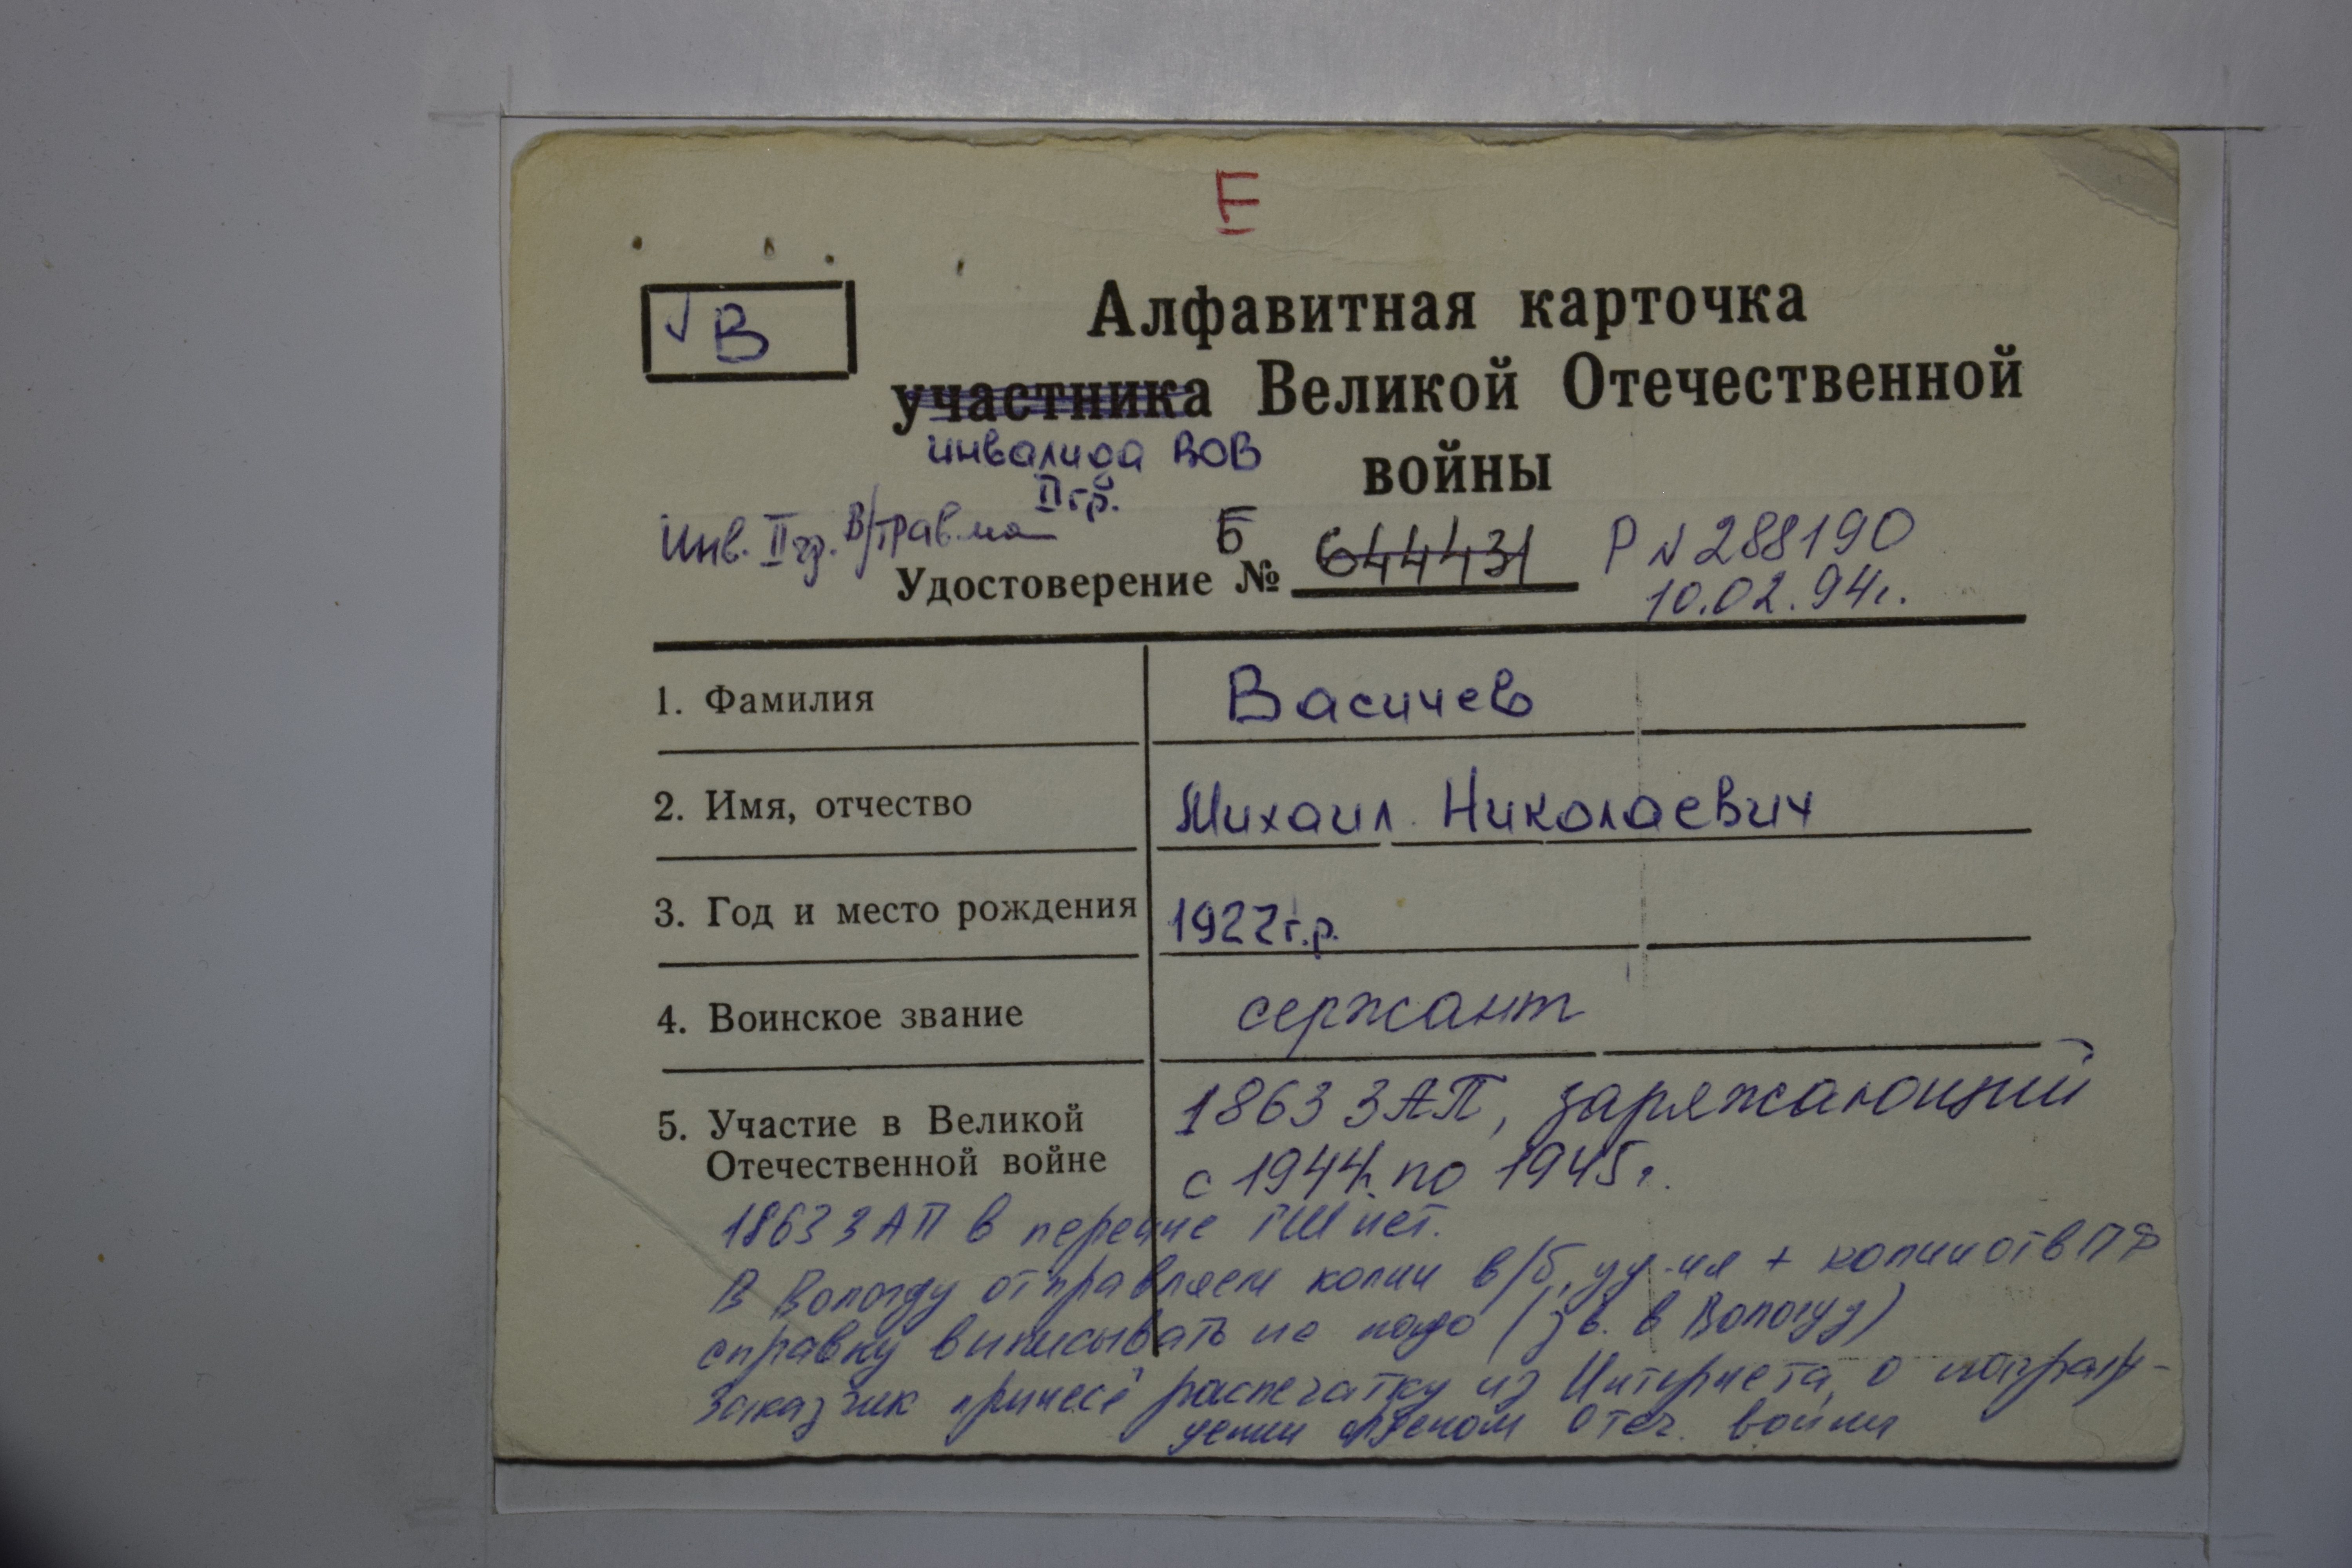 Е
√ В
Алфавитная карточка
участника Великой Отечественной
инвалида ВОВ
войны
II гр.
Инв. II гр. В/травма
Б
Удостоверение № 644431
Р № 288190
10.02.94г.
1. Фамилия Васичев
2. Имя, отчество Михаил Николаевич
3. Год и место рождения 1922г.р.
4. Воинское звание сержант
5. Участие в Великой 1863 ЗАП, заряжающий
Отечественной войне с 1944г. по 1945г.
1863 ЗАП в перечне ГШ нет.
В Вологду отправляем копии в/б, уд-ия + копии отв ПФ
справку выписывать не надо (зв. в Вологду)
Заказчик принесё распечатку из Интернета о награж-
дении орденом Отеч. войны